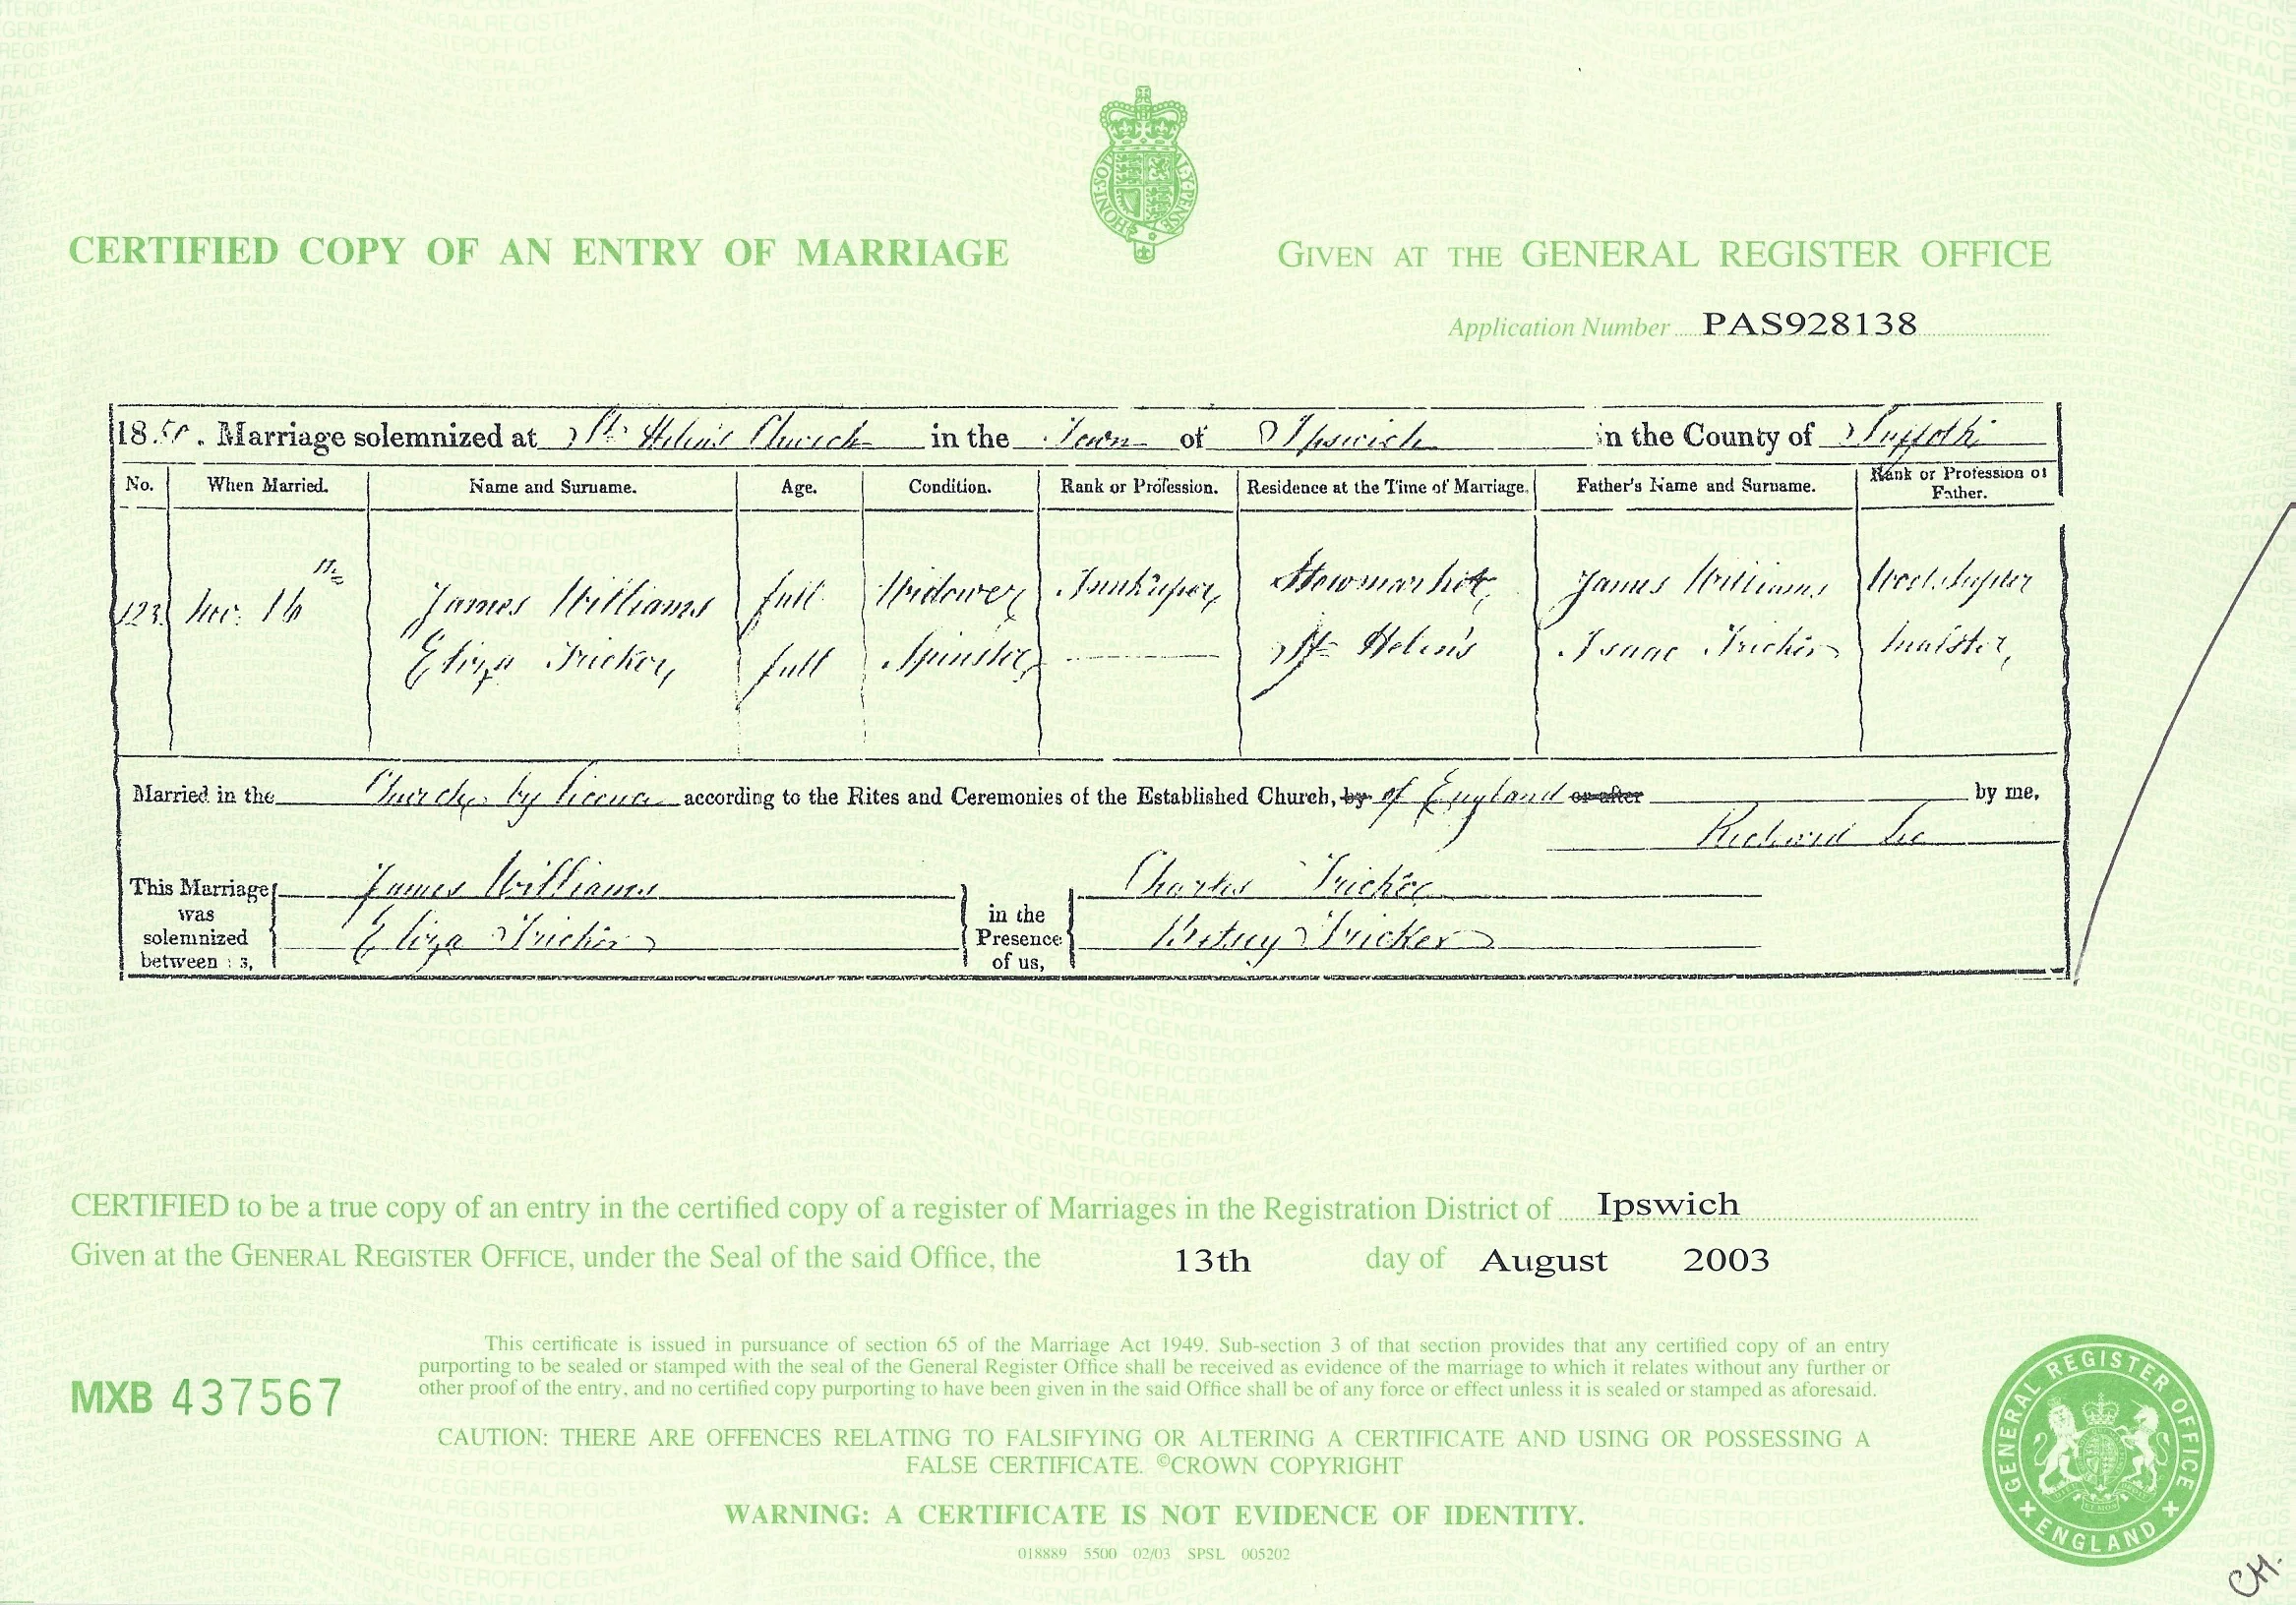 CERTIFIED COPY OF AN ENTRY OF MARRIAGE
GIVEN AT THE GENERAL REGISTER OFFICE
Application Number PAS928138
1850. Marriage solemnized at St. Helen's Church in the Town of Ipswich in the County of Suffolk
No. When Married. Name and Surname. Age. Condition. Rank or Profession. Residence at the Time of Marriage. Father's Name and Surname. Rank or Profession of Father.
123 Nov. 16th James Williams full Widower Innkeeper Stowmarket James Williams
Eliza Tricker, full Spinster St Helen's Isaac Tricker Malster,
Married in the Church by licence according to the Rites and Ceremonies of the Established Church, by of England or after by me,
Richard
This Marriage was solemnized between us,
James Williams
Eliza Tricker
in the Presence of us,
Charles Tricker
Betsey Tricker
CERTIFIED to be a true copy of an entry in the certified copy of a register of Marriages in the Registration District of Ipswich
Given at the GENERAL REGISTER OFFICE, under the Seal of the said Office, the 13th day of August 2003
This certificate is issued in pursuance of section 65 of the Marriage Act 1949. Sub-section 3 of that section provides that any certified copy of an entry
purporting to be sealed or stamped with the seal of the General Register Office shall be received as evidence of the marriage to which it relates without any further or
other proof of the entry, and no certified copy purporting to have been given in the said Office shall be of any force or effect unless it is sealed or stamped as aforesaid.
MXB 437567
CAUTION: THERE ARE OFFENCES RELATING TO FALSIFYING OR ALTERING A CERTIFICATE AND USING OR POSSESSING A
FALSE CERTIFICATE. ©CROWN COPYRIGHT
WARNING: A CERTIFICATE IS NOT EVIDENCE OF IDENTITY.
018889 5500 02/03 SPSL 005202
GENERAL REGISTER OFFICE
ENGLAND
CH.